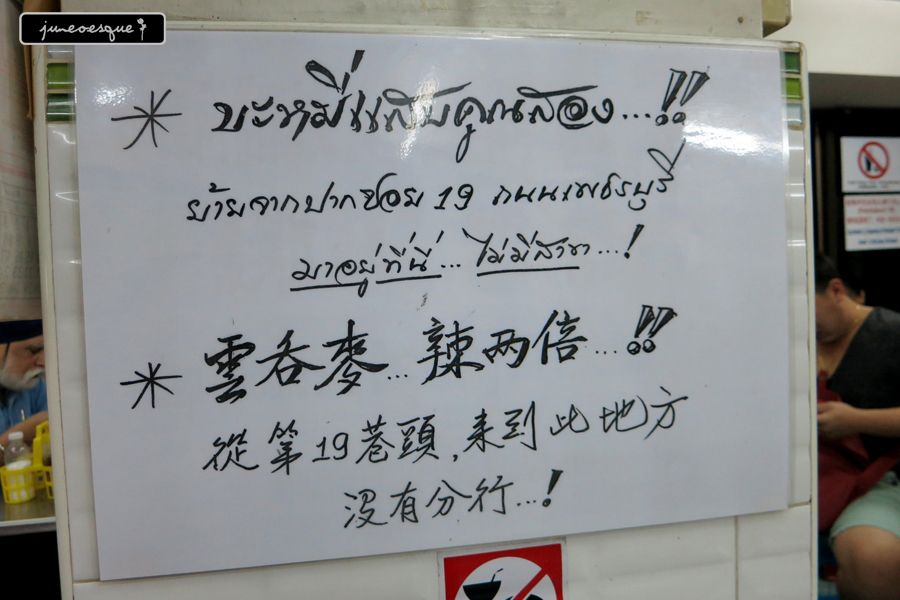 juneoesque
* บะหมี่แสบคูณสอง...!!
ย้ายจากปากซอย 19 ถนนเพชรบุรี
มาอยู่ที่นี่... ไม่มีสาขา...!
* 雲吞麥...辣两倍...!!
從第19巷頭,来到此地方
没有分行...!